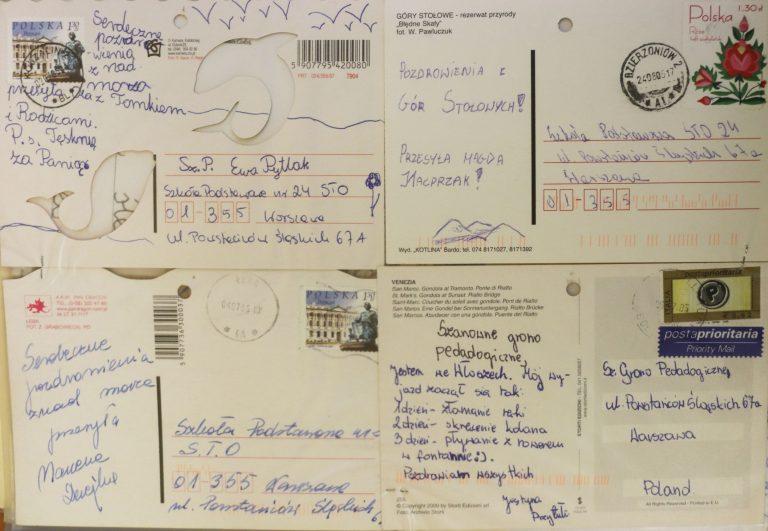 POLSKA 1,30
Serdeczne
pozdro
wienia
z nad
morza
przesyła
z Tomkiem
i Rodzicami.
P.s. Tęsknię
za Panią
5 907795 420080
7904
Sz. P. Ewa Pytlak
Szkoła Podstawowa nr 24 STO
01-355 Warszawa
ul. Powstańców Śląskich 67A
GÓRY STOŁOWE - rezerwat przyrody
„Błędne Skały”
fot. W. Pawluczuk
POZDROWIENIA Z
GÓR STOŁOWYCH!
PRZESYŁA MAGDA
KACPRZAK!
Wyd. „KOTLINA” Bardo: tel. 074 8171027, 8171392
Polska 1,30zł
DZIERŻONIÓW 2
240805 17
A1
Szkoła Podstawowa STO 24
ul. Powstańców Śląskich 67a
Warszawa
01-355
ŁEBA
Serdeczne
pozdrowienia
znad morza
przesyła
Marcena
POLSKA 1,30
Szkoła Podstawowa nr
S.T.O
01-355 Warszawa
ul. Powstańców Śląskich 6
VENEZIA
San Marco. Gondola al Tramonto. Ponte di Rialto
St. Mark's. Gondola at Sunset. Rialto Bridge
Saint-Marc. Coucher du soleil avec gondole. Pont de Rialto
San Marco. Eine Gondel bei Sonnenuntergang. Rialto Brücke
San Marcos. Atardecer con una góndola. Puente del Rialto
Szanowne grono
pedagogiczne,
Jestem we Włoszech. Mój wy-
jazd zaczął się tak:
1 dzień - złamanie ręki
2 dzień - skręcenie kolana
3 dzień - pływanie z rowerem
w fontannie :).
Pozdrawiam wszystkich
Justyna
STORTI EDIZIONI
© Copyright 2000 by Storti Edizioni srl
Foto: Andrea Storti
postaprioritaria
P
postaprioritaria
Priority Mail
Sz. Grono Pedagogiczne
ul. Powstańców Śląskich 67a
Warszawa
Poland